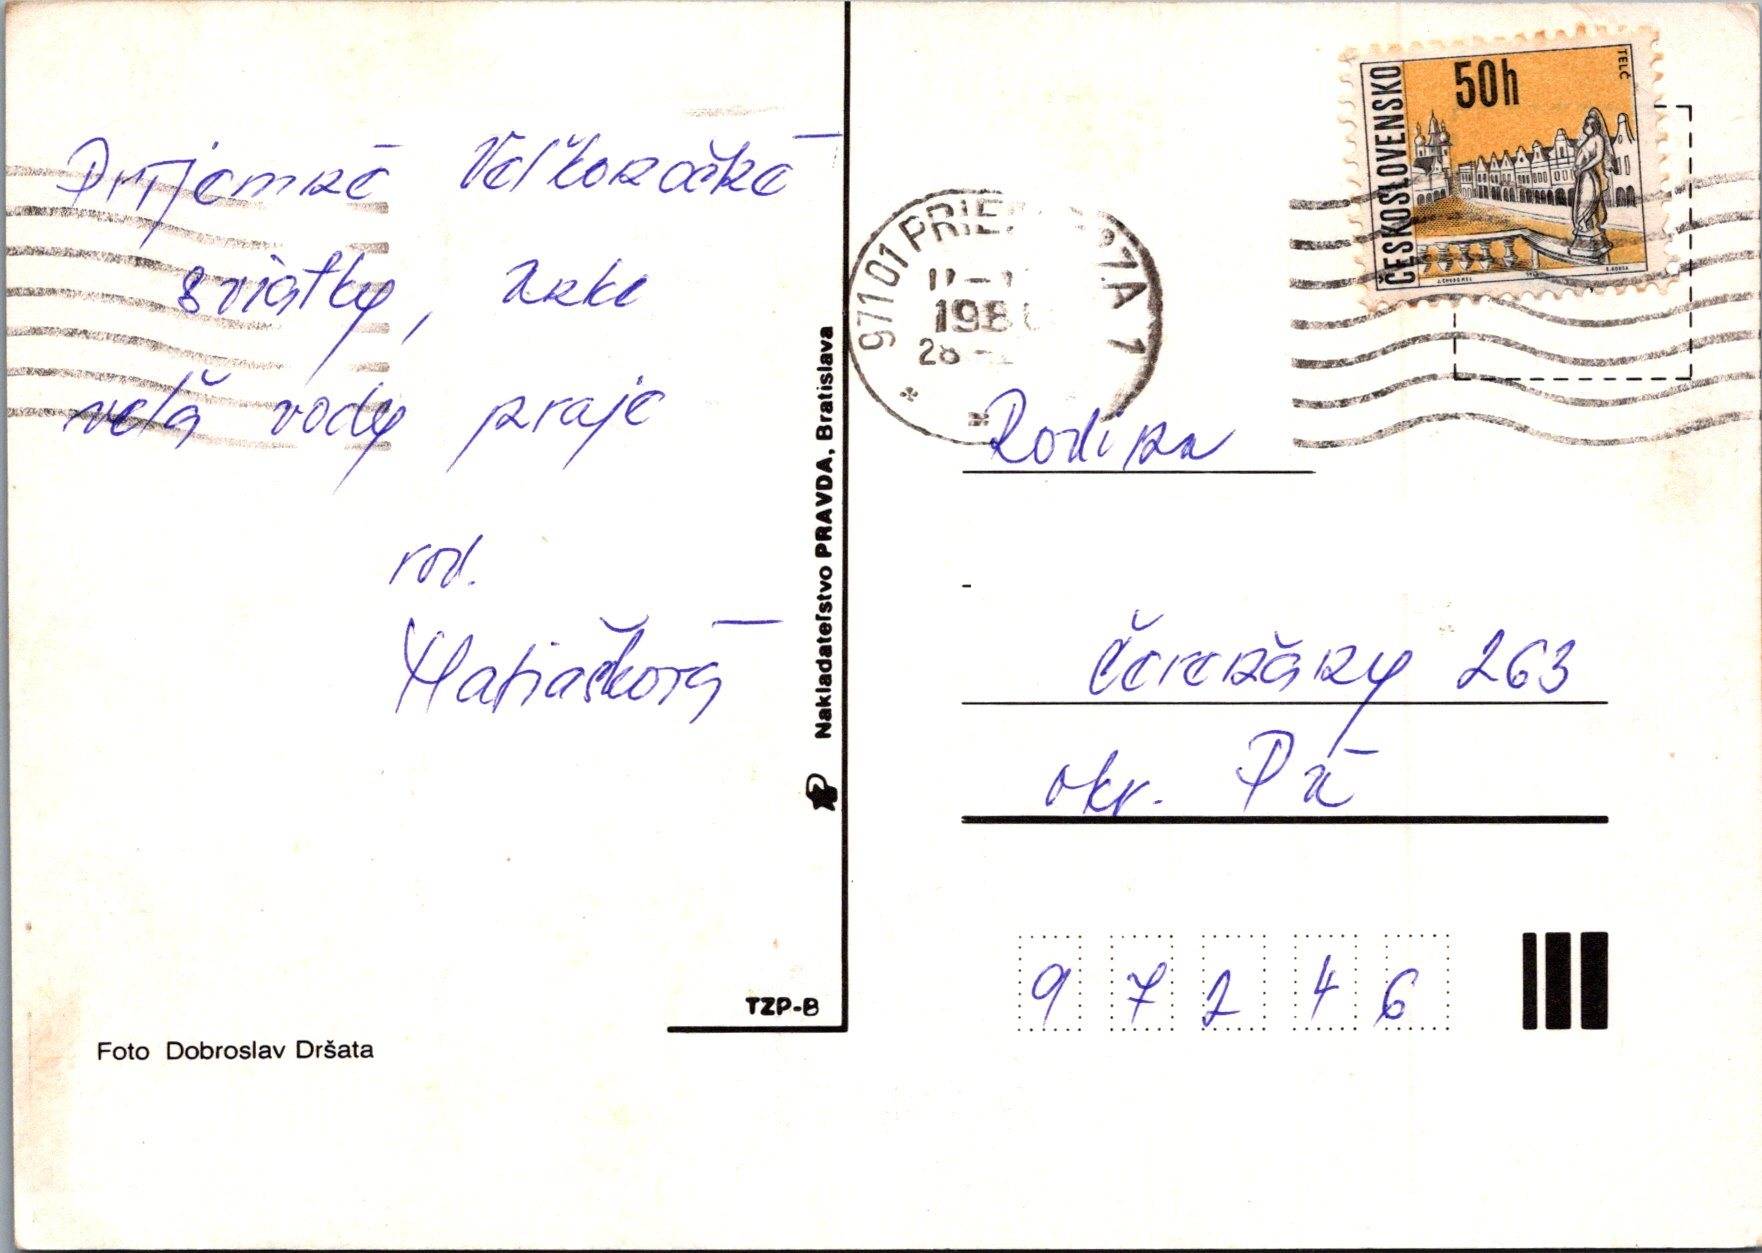 Príjemné Veľkonočné
sviatky,
veľa vody praje
rod.
Matiašková
Nakladateľstvo PRAVDA, Bratislava
TZP-B
Foto Dobroslav Dršata
ČESKOSLOVENSKO
50h
TELČ
971 01 PRIE
ZA 1
198
28
Rodina
Čereňany 263
okr. Pd
9 7 2 4 6